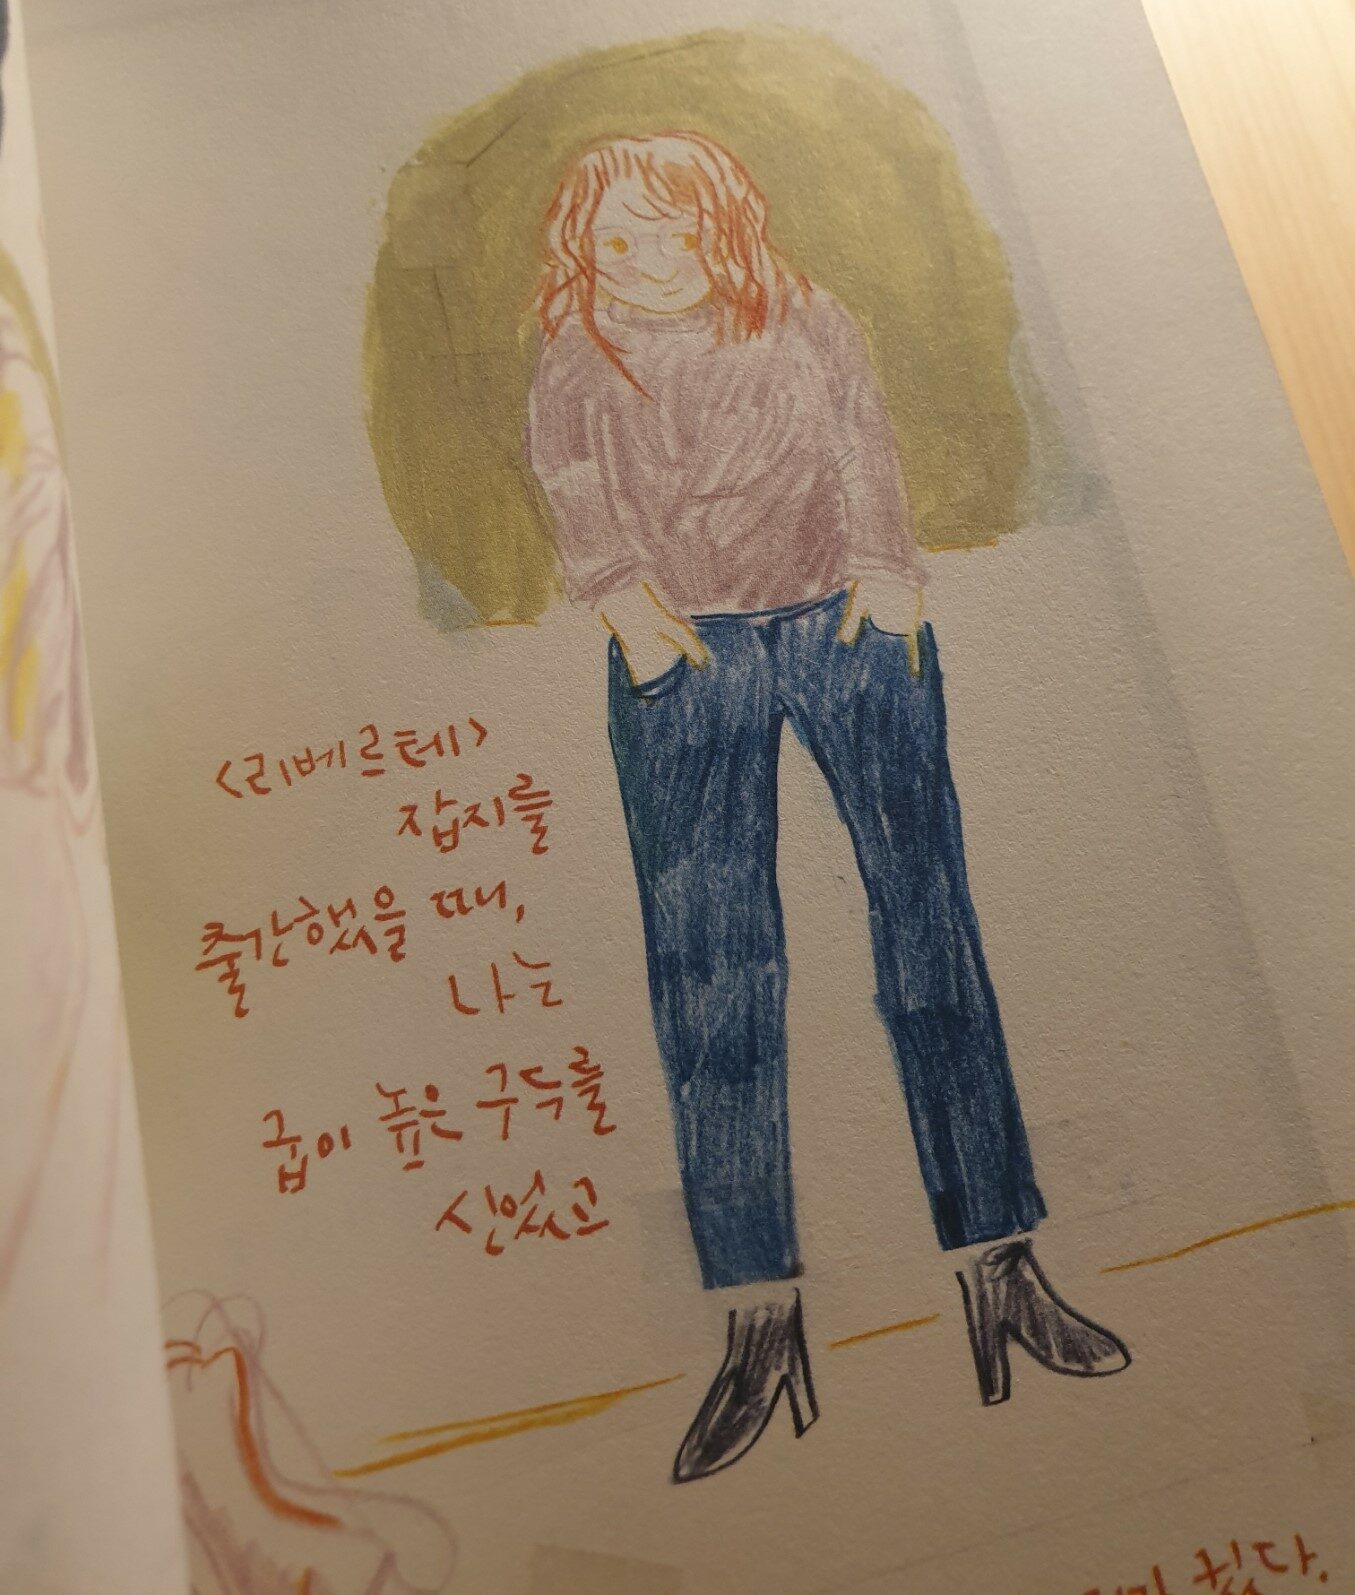 <리베르테>
잡지를
출간했을 때,
나는
굽이 높은 구두를
신었고